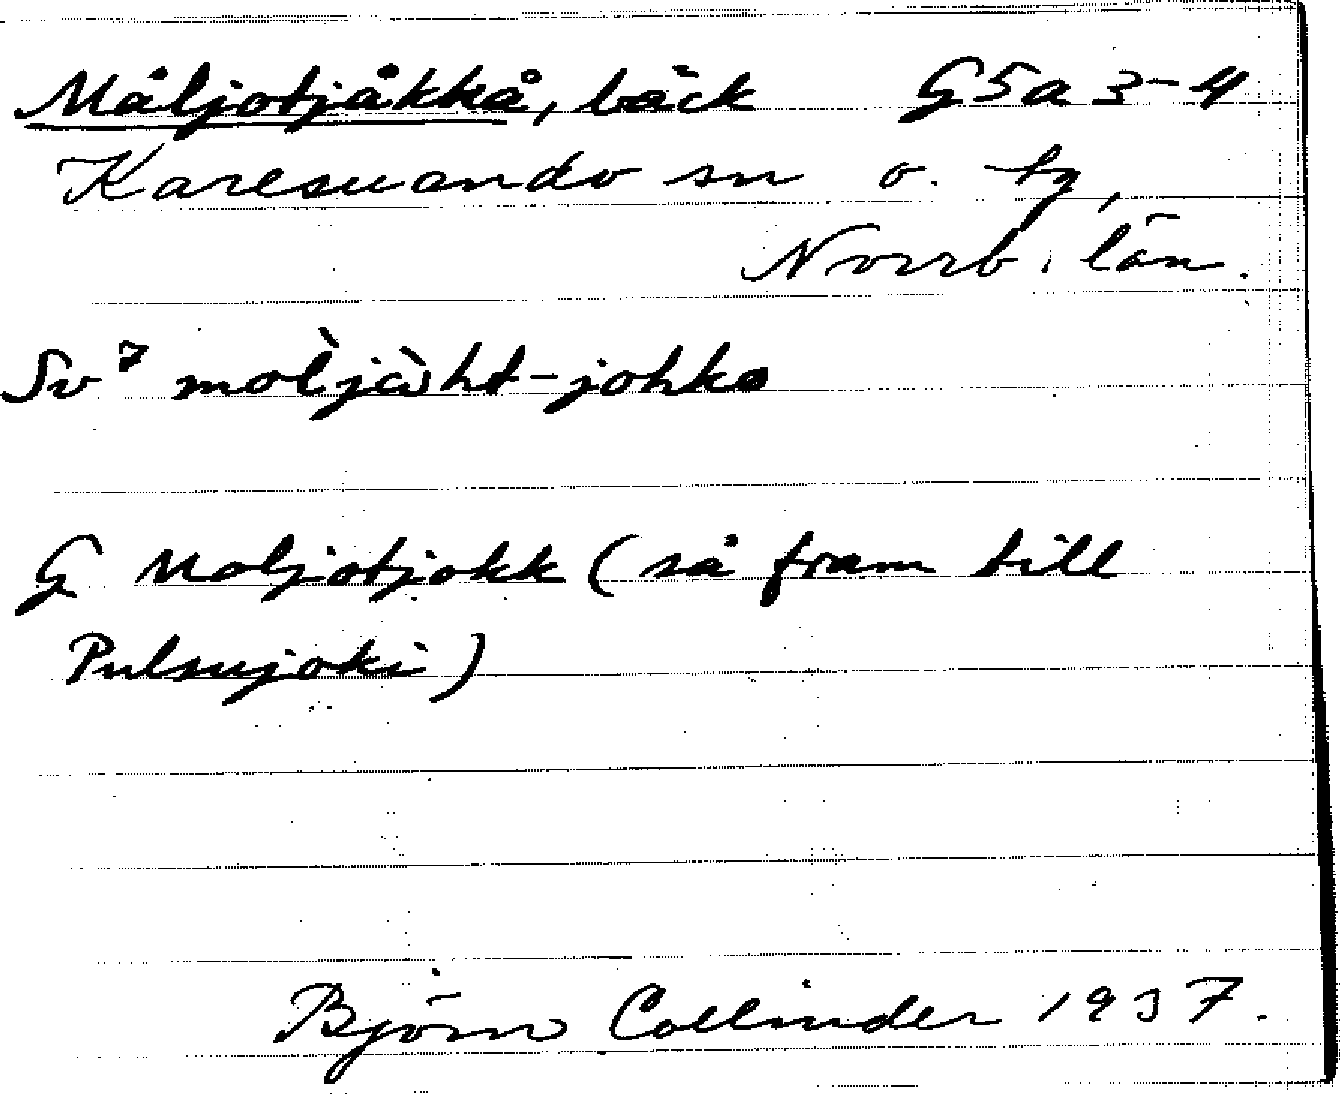 Måljotjåkkå, bäck G5a 3-4
Karesuando sn o. tg,
Norrb. län.
Sv⁷ mol̀jàht-johka
G Moljotjokk (så fram till
Pulsujoki)
Björn Collinder 1937.